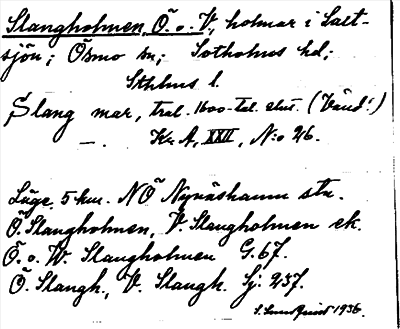 Slangholmen, Ö. o. V., holmar i Salt-
sjön; Ösmo sn; Sotholms hd;
Sthlms l.
Slang mar, trol. 1600-tal. slut. (Vänd!)
—. Kr A, XXII, N:o 26.
Läge. 5 km. NÖ Nynäshamn stn.
Ö. Slangholmen, V. Slangholmen ek.
Ö. o. W. Slangholmen G. 67.
Ö. Slangh., V. Slangh. Sj. 237.
S. Sundquist 1936.